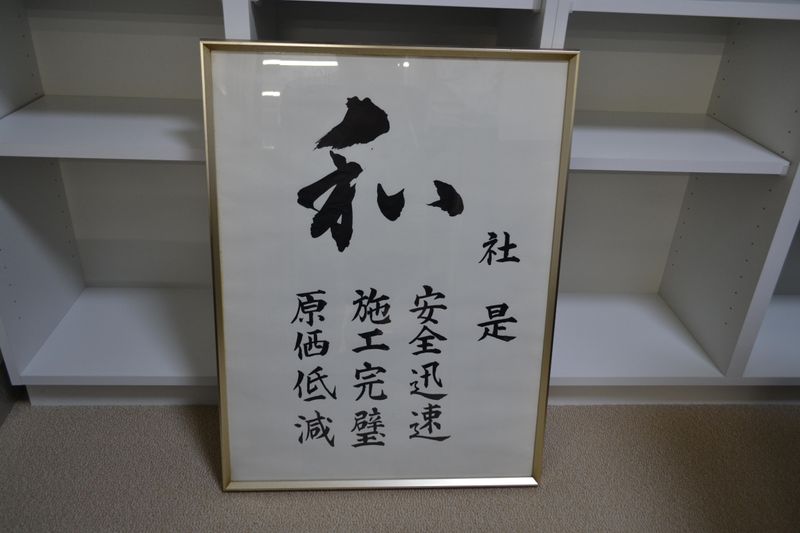 社是
和
安全迅速
施工完璧
原価低減